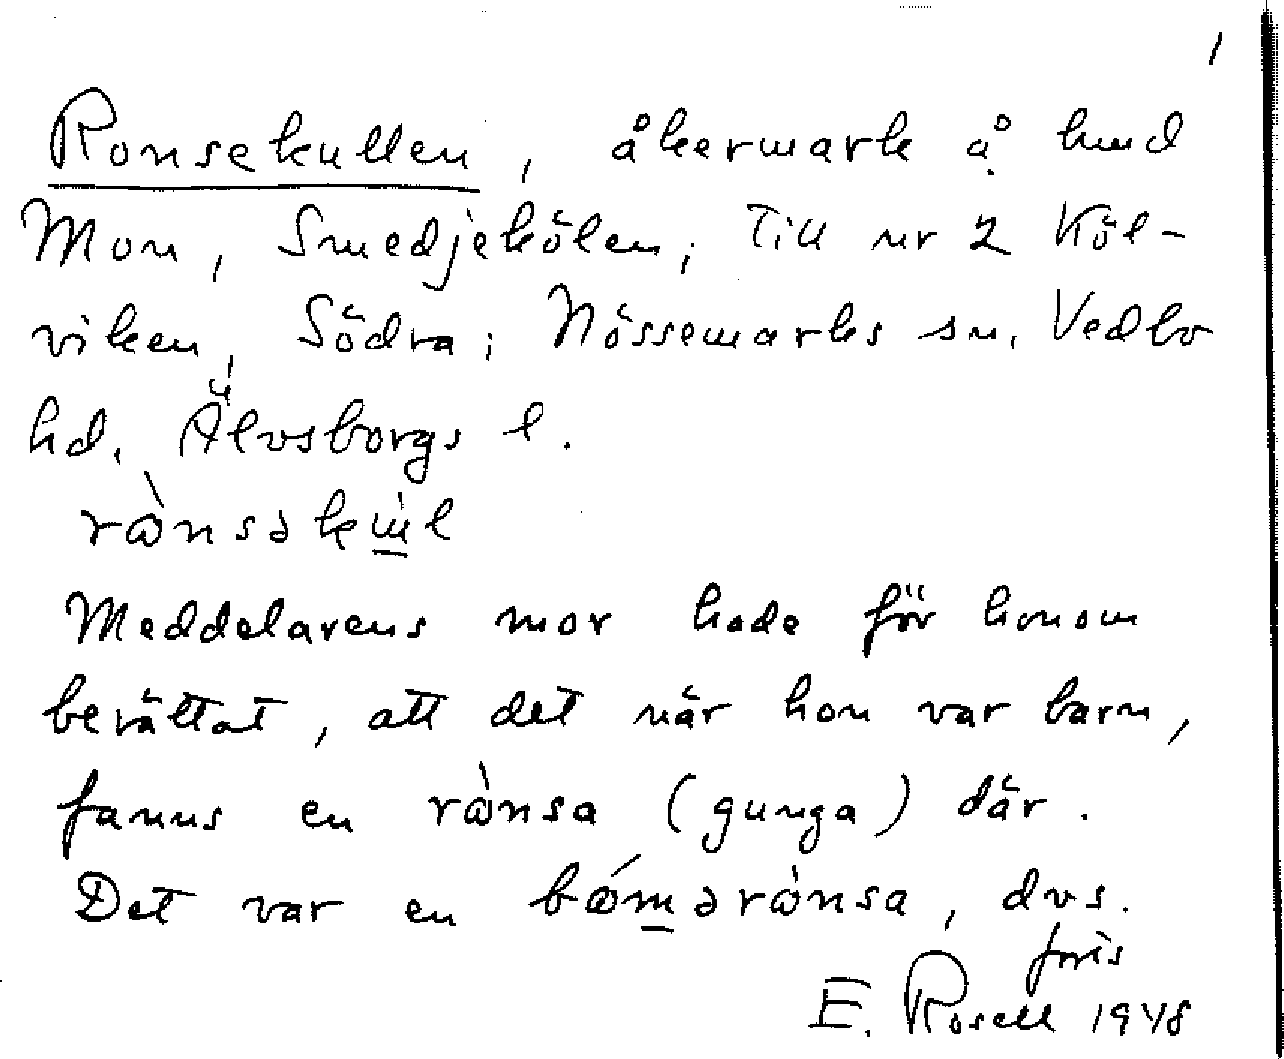 1
Ronsekullen, åkermark å hmd
Mon, Smedjekölen; Till nr 2 Köl-
viken, Södra; Nössemarks sn, Vedbo
hd. Älvsborgs l.
rὼnsəkɯ̀l
Meddelarens mor hade för honom
berättat, att det när hon var barn,
fanns en rὼnsa (gunga) där.
Det var en bώmərὼnsa, dvs.
forts
E. Rosell 1948